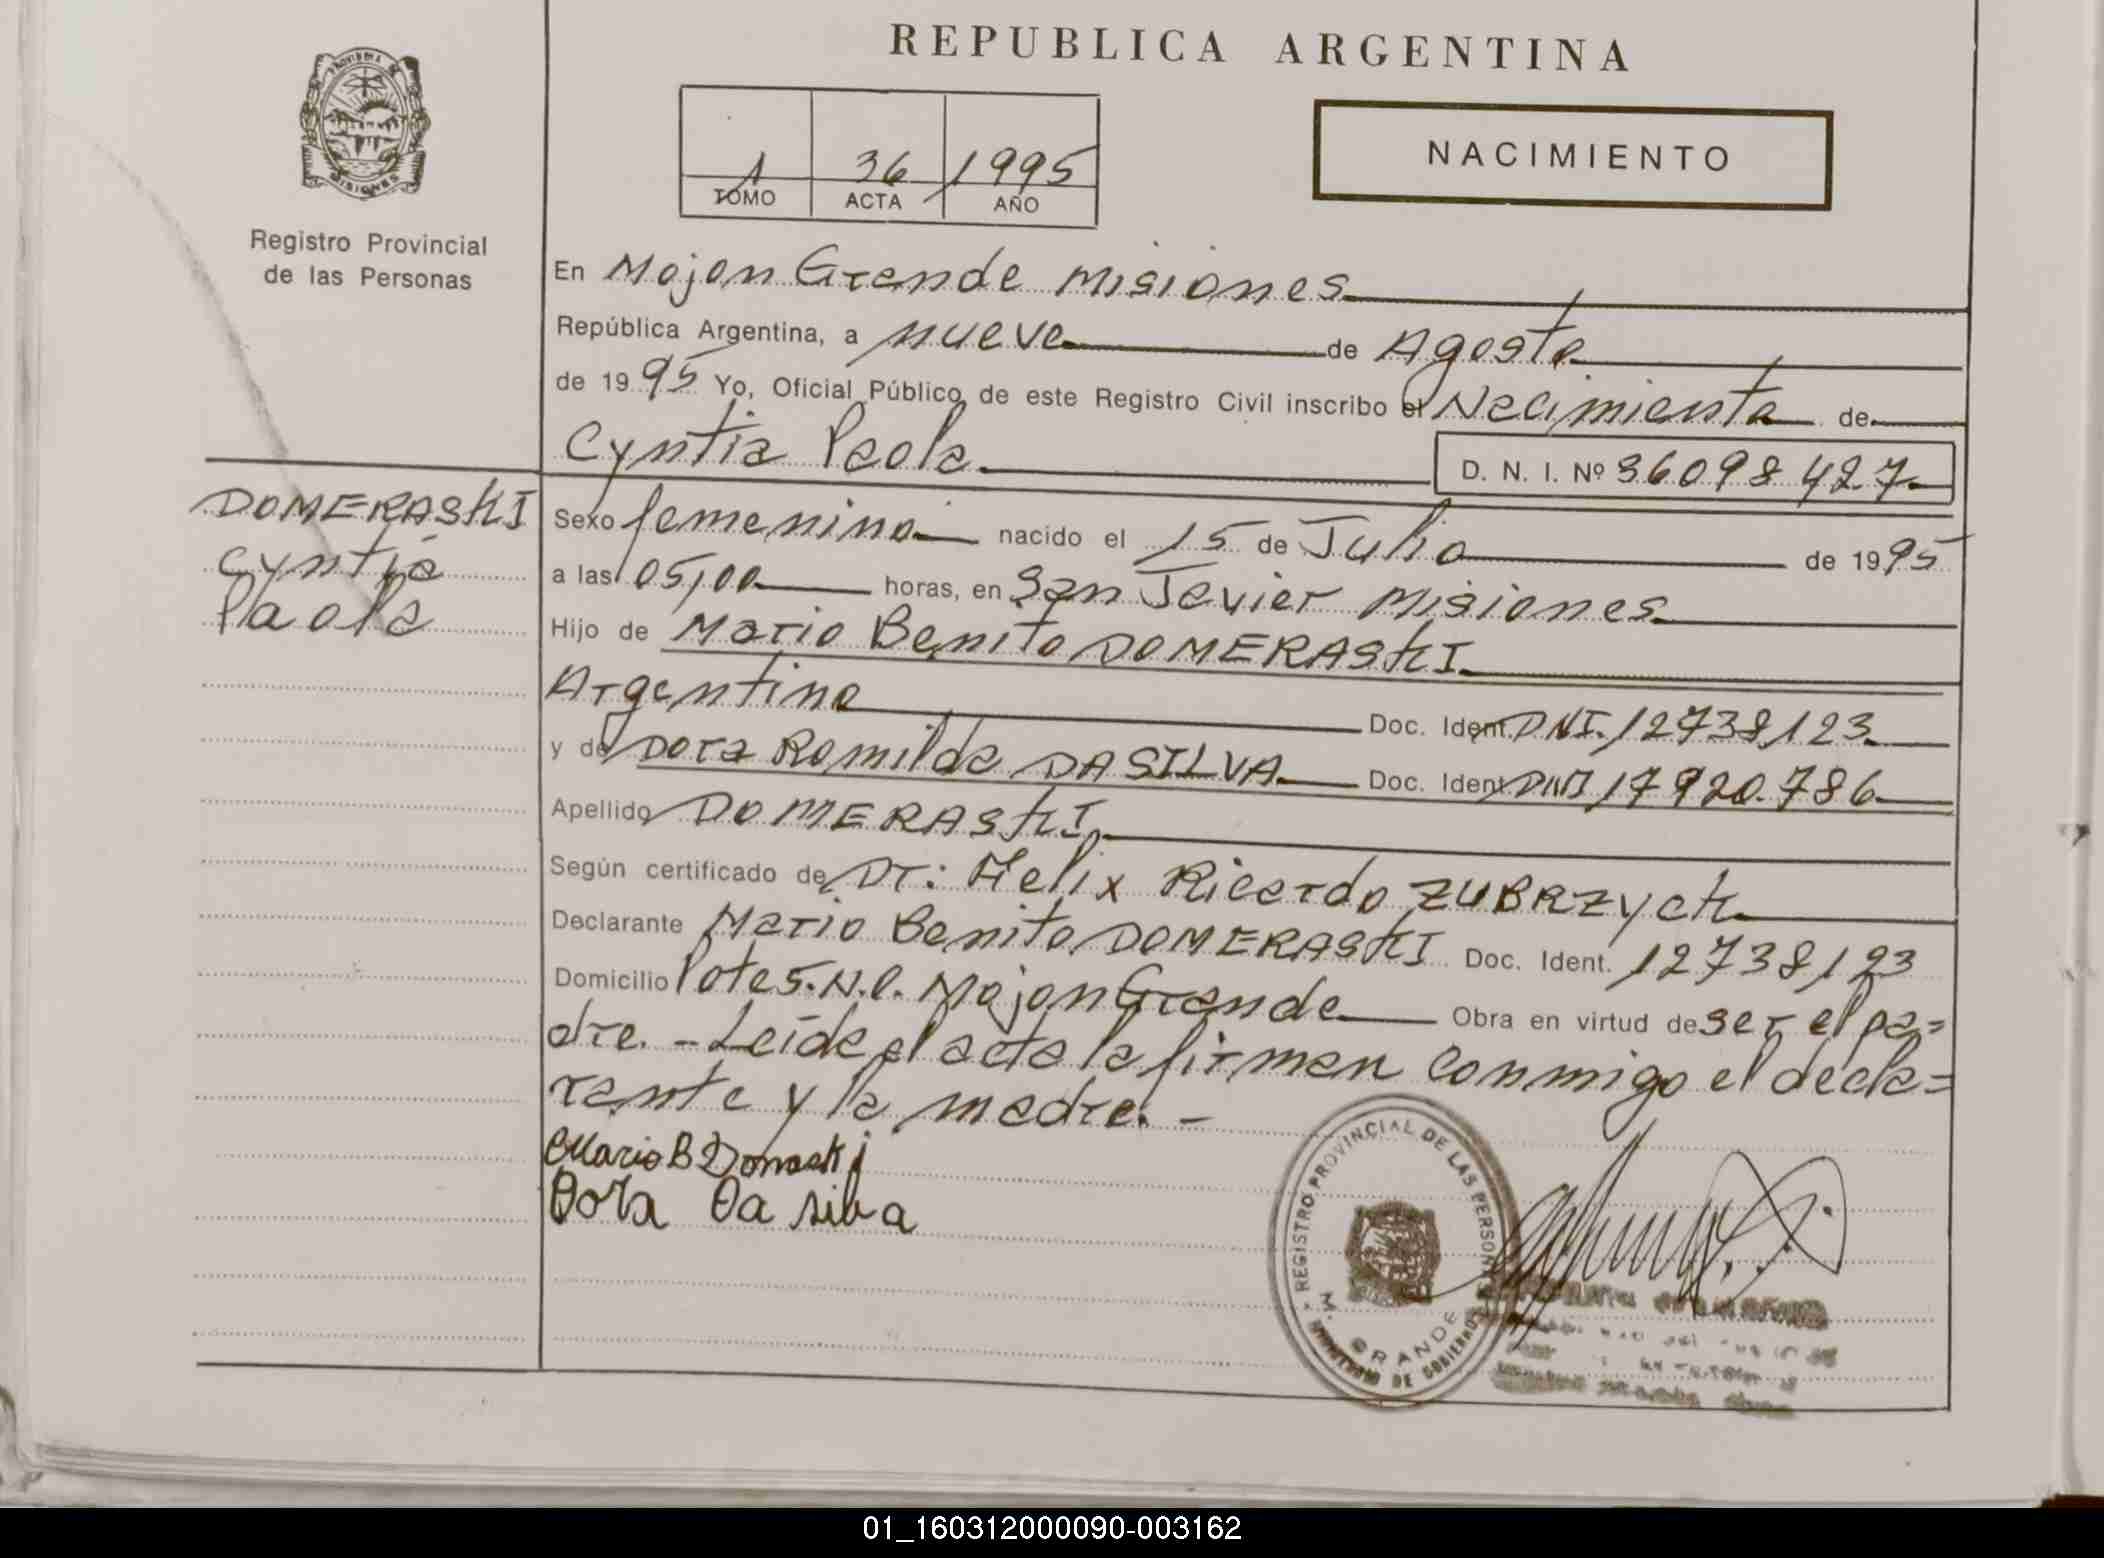 REPUBLICA ARGENTINA
PROVINCIA DE
MISIONES
Registro Provincial
de las Personas
1 36 1995
TOMO ACTA AÑO
NACIMIENTO
En Mojon Grande Misiones
República Argentina, a nueve de Agosto
de 1995 Yo, Oficial Público de este Registro Civil inscribo el Nacimiento de
Cyntia Paola D. N. I. Nº 36098427
DOMERASKI
Cyntia
Paola
Sexo femenino nacido el 15 de Julio de 1995
a las 05,00 horas, en San Javier Misiones
Hijo de Mario Benito DOMERASKI
Argentino Doc. Ident. DNI. 12738123
y de Dora Romilda DA SILVA Doc. Ident. DNI 17920.786
Apellido DOMERASKI
Según certificado de Dr: Felix Ricardo ZUBRZYCK
Declarante Mario Benito DOMERASKI Doc. Ident. 12738123
Domicilio Mojon Grande Obra en virtud de ser el pa=
dre. - Leída el acta la firman conmigo el decla=
rante y la madre. -
Mario B Domaski
Dora Da silva
REGISTRO PROVINCIAL DE LAS PERSONAS
M. GRANDE
MINISTERIO DE GOBIERNO
01_160312000090-003162